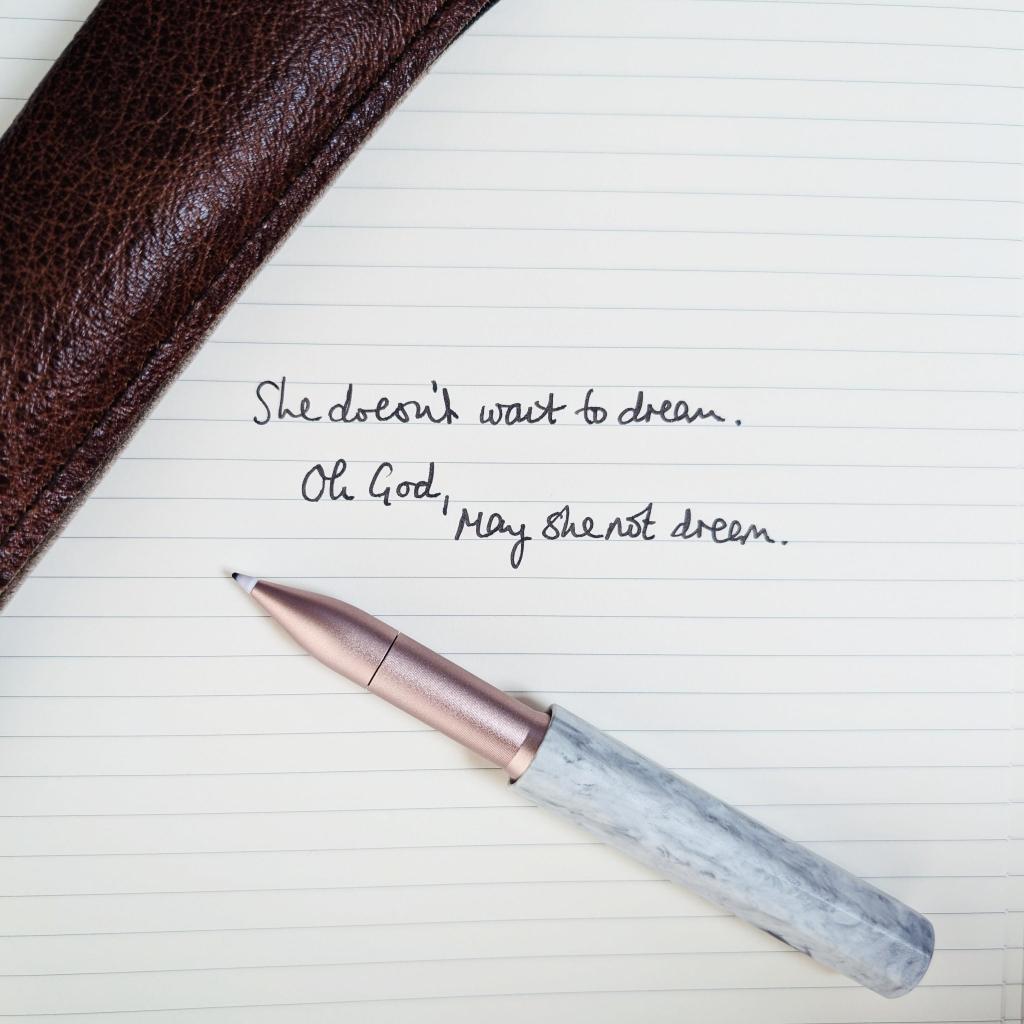 She doesn't want to dream.
Oh God,
May she not dream.